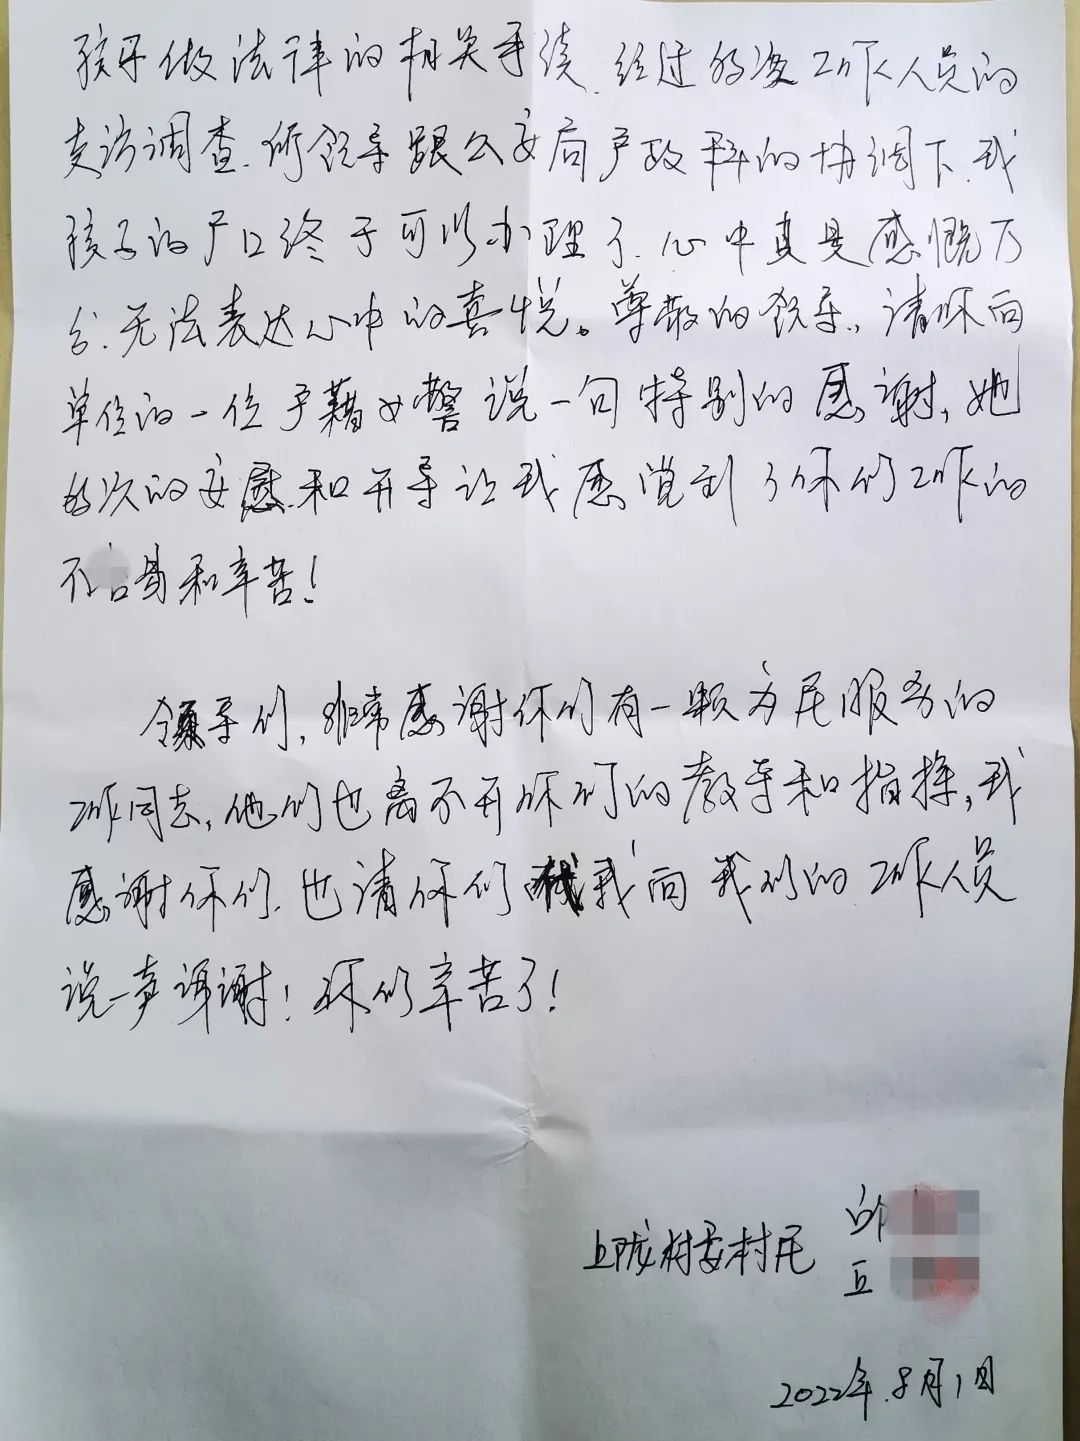 孩子做法律的相关手续.经过多次工作人员的
走访调查.所领导跟公安局户政科的协调下.我
孩子的户口终于可以办理了.心中真是感慨万
分.无法表达心中的喜悦。尊敬的领导.,请你向
单位的一位户籍女警说一句特别的感谢,她
多次的安慰.和开导让我感觉到了你们工作的
不容易和辛苦!
领导们,非常感谢你们有一颗为民服务的
工作同志,他们也离不开你们的教导和指挥,我
感谢你们.也请你们代我向我们的工作人员
说一声谢谢!你们辛苦了!
上陇村委村民 邱
丘
2022年.8月1日